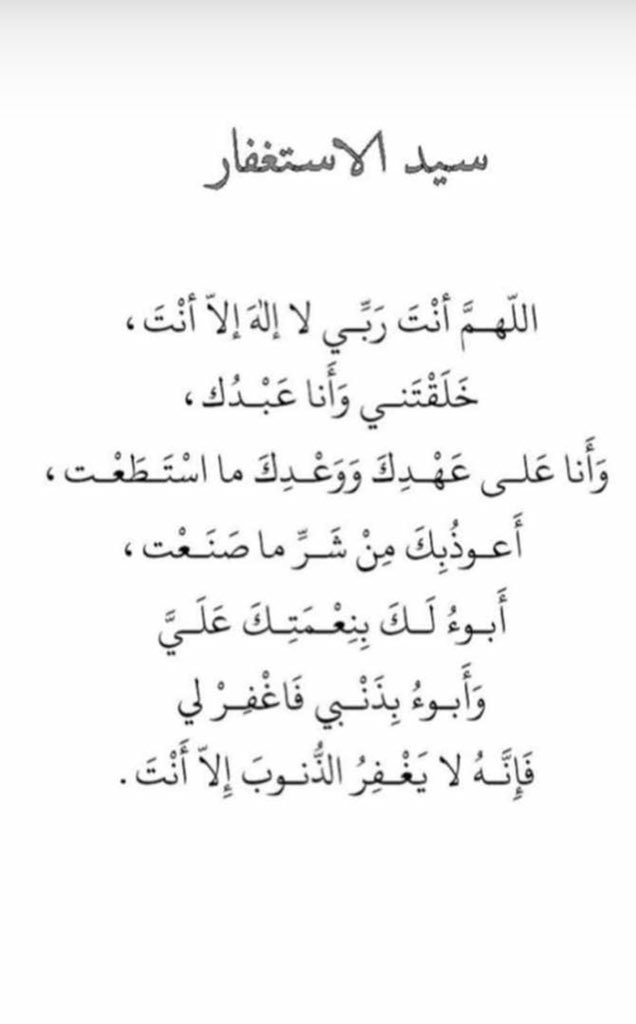 سيد الاستغفار
اللّهـمَّ أنْتَ رَبِّـي لا إلهَ إلاّ أنْتَ ،
خَلَقْتَنـي وَأَنا عَبْـدُك ،
وَأَنا عَلـى عَهْـدِكَ وَوَعْـدِكَ ما اسْتَـطَعْـت ،
أَعـوذُبِكَ مِنْ شَـرِّ ما صَنَـعْت ،
أَبـوءُ لَـكَ بِنِعْـمَتِـكَ عَلَـيَّ
وَأَبـوءُ بِذَنْـبي فَاغْفِـرْ لي
فَإِنَّـهُ لا يَغْـفِرُ الذُّنـوبَ إِلاّ أَنْتَ .